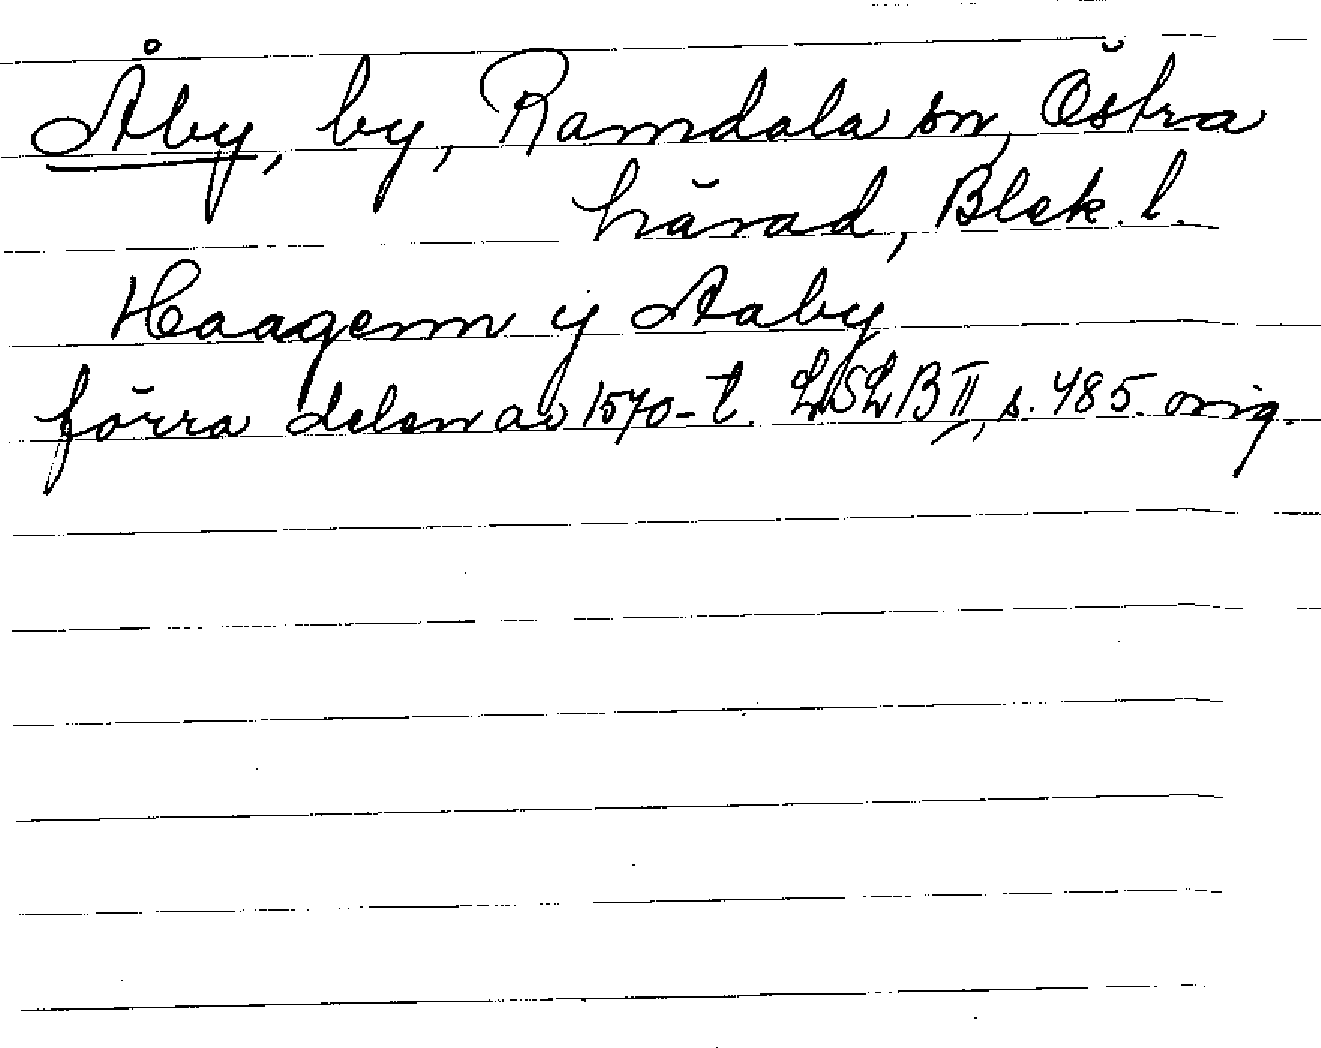 Åby, by, Ramdala sn, Östra
härad, Blek. l.
Haagenn ij Aaby
förra delen av 1570-t. LSLB II, s. 485. orig.